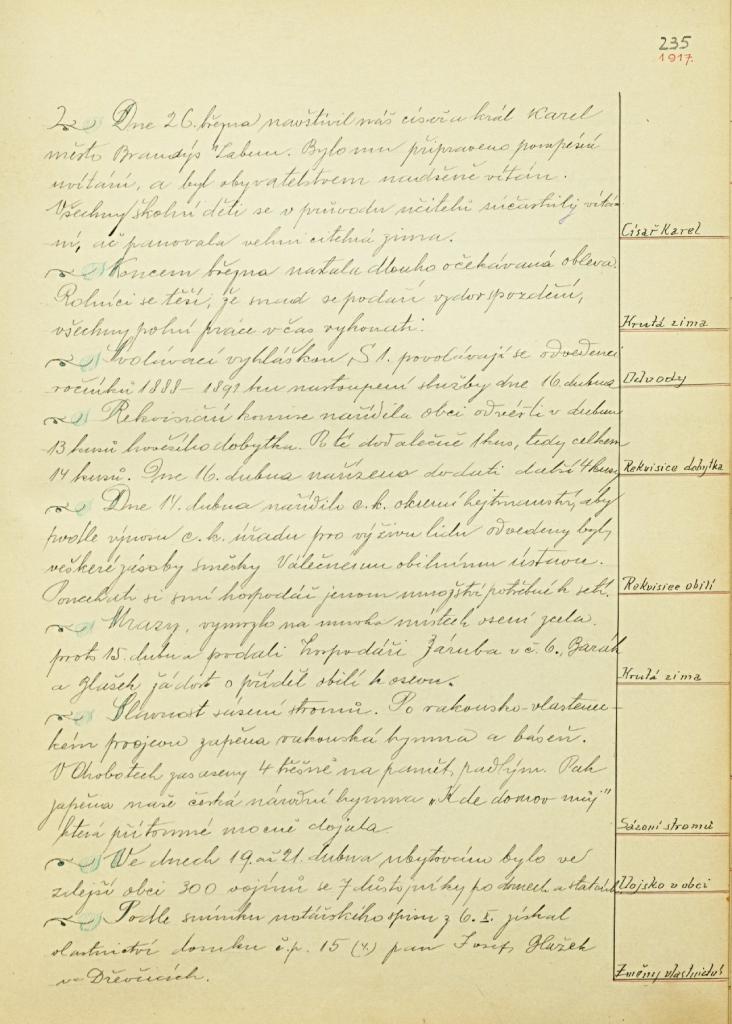 235
1917.
Dne 26. března navštívil náš císař a král Karel
město Brandýs n Labem. Bylo mu připraveno pompésní
uvítání, a byl obyvatelstvem nadšeně vítán.
Všechny školní děti se v průvodu učitelů súčastnily vítá-
ní, ač panovala velmi citelná zima.
Císař Karel
Koncem března nastala dlouho očekávaná obleva.
Rolníci se těší, že snad se podaří vzdor spozdění,
všechny polní práce včas vykonati.
Krutá zima
Svolávací vyhláškou S 1. povolávají se odvedenci
ročníků 1888 - 1891 ku nastoupení služby dne 16. dubna
Odvody
Rekvisiční komise nařídila obci odvésti v dubnu
13 kusů hovězího dobytka. P té dodatečně 1 kus, tedy celkem
14 kusů. Dne 16. dubna nařízeno dodati další 4 kusy
Rekvisice dobytka
Dne 14. dubna nařídilo c. k. okresní hejtmanství, aby
podle výnosu c. k. úřadu pro výživu lidu odvedeny byly
veškeré zásoby směsky Válečnému obilnímu ústavu.
Ponechati si smí hospodář jenom množství potřebné k setí.
Rekvisice obilí
Mrazy, vymrzlo na mnoha místech osení zcela.
proto 15. dubna podali hospodáři Záruba v č. 6., Barák
a Glažek žádost o příděl obilí k osevu.
Krutá zima
Slavnost sázení stromů. Po rakousko-vlastene-
kém projevu zapěna rakouská hymna a báseň.
V Chobotech zasazeny 4 třešně na paměť padlým. Pak
zapěna naše česká národní hymna "Kde domov můj"
která přítomné mocně dojala.
Sázení stromů
Ve dnech 19. až 21. dubna ubytováno bylo ve
zdejší obci 300 vojínů se 7 důstojníky po domech a statcích
Vojsko v obci
Podle snímku notářského spisu z 6. X. získal
vlastnictví domku č.p. 15 (4.) pan Josef Glažek
ve Dřevčicích.
Změny vlastnictví